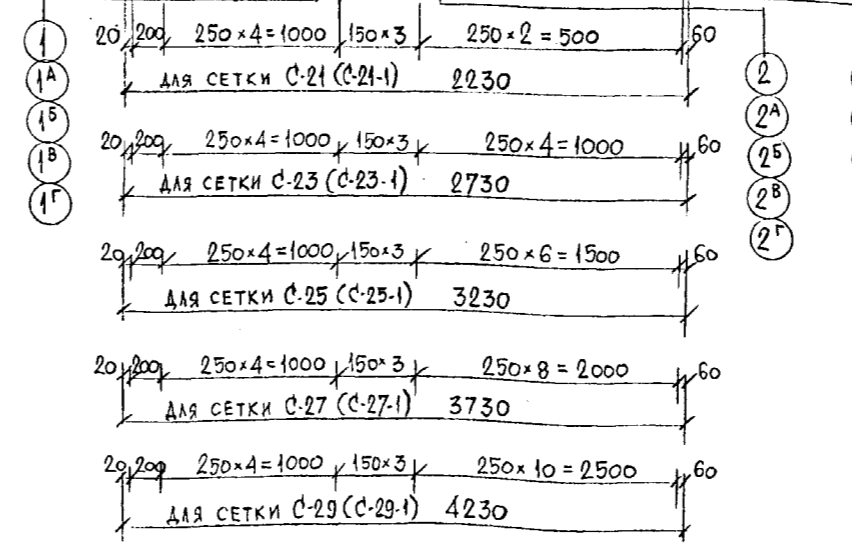 20 200 250×4=1000 150×3 250×2=500 60
для сетки С-21 (С-21-1) 2230
20 200 250×4=1000 150×3 250×4=1000 60
для сетки С-23 (С-23-1) 2730
20 200 250×4=1000 150×3 250×6=1500 60
для сетки С-25 (С-25-1) 3230
20 200 250×4=1000 150×3 250×8=2000 60
для сетки С-27 (С-27-1) 3730
20 200 250×4=1000 150×3 250×10=2500 60
для сетки С-29 (С-29-1) 4230
1
1А
1Б
1В
1Г
2
2А
2Б
2В
2Г